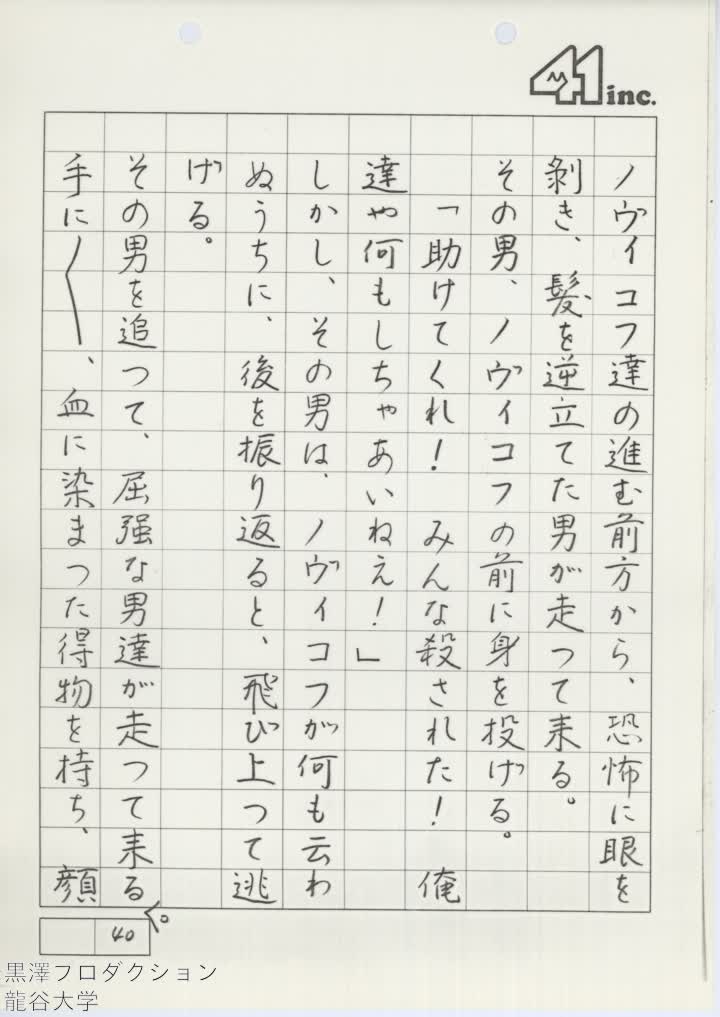 41 inc.
ノヴイコフ達の進む前方から、恐怖に眼を
剝き、髪を逆立てた男が走つて来る。
その男、ノヴイコフの前に身を投げる。
「助けてくれ！　みんな殺された！　俺
達や何もしちゃあいねえ！」
しかし、その男は、ノヴイコフが何も云わ
ぬうちに、後を振り返ると、飛び上つて逃
げる。
その男を追つて、屈強な男達が走つて来る。
手に〱、血に染まつた得物を持ち、顔
40
黒澤プロダクション
龍谷大学